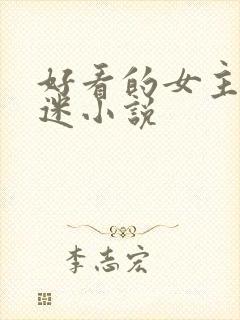 好看的女主
迷小说
李志宏